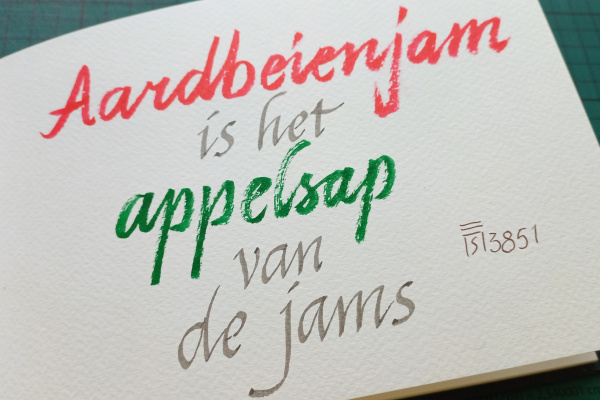 Aardbeienjam
is het
appelsap
van
de jams
3851